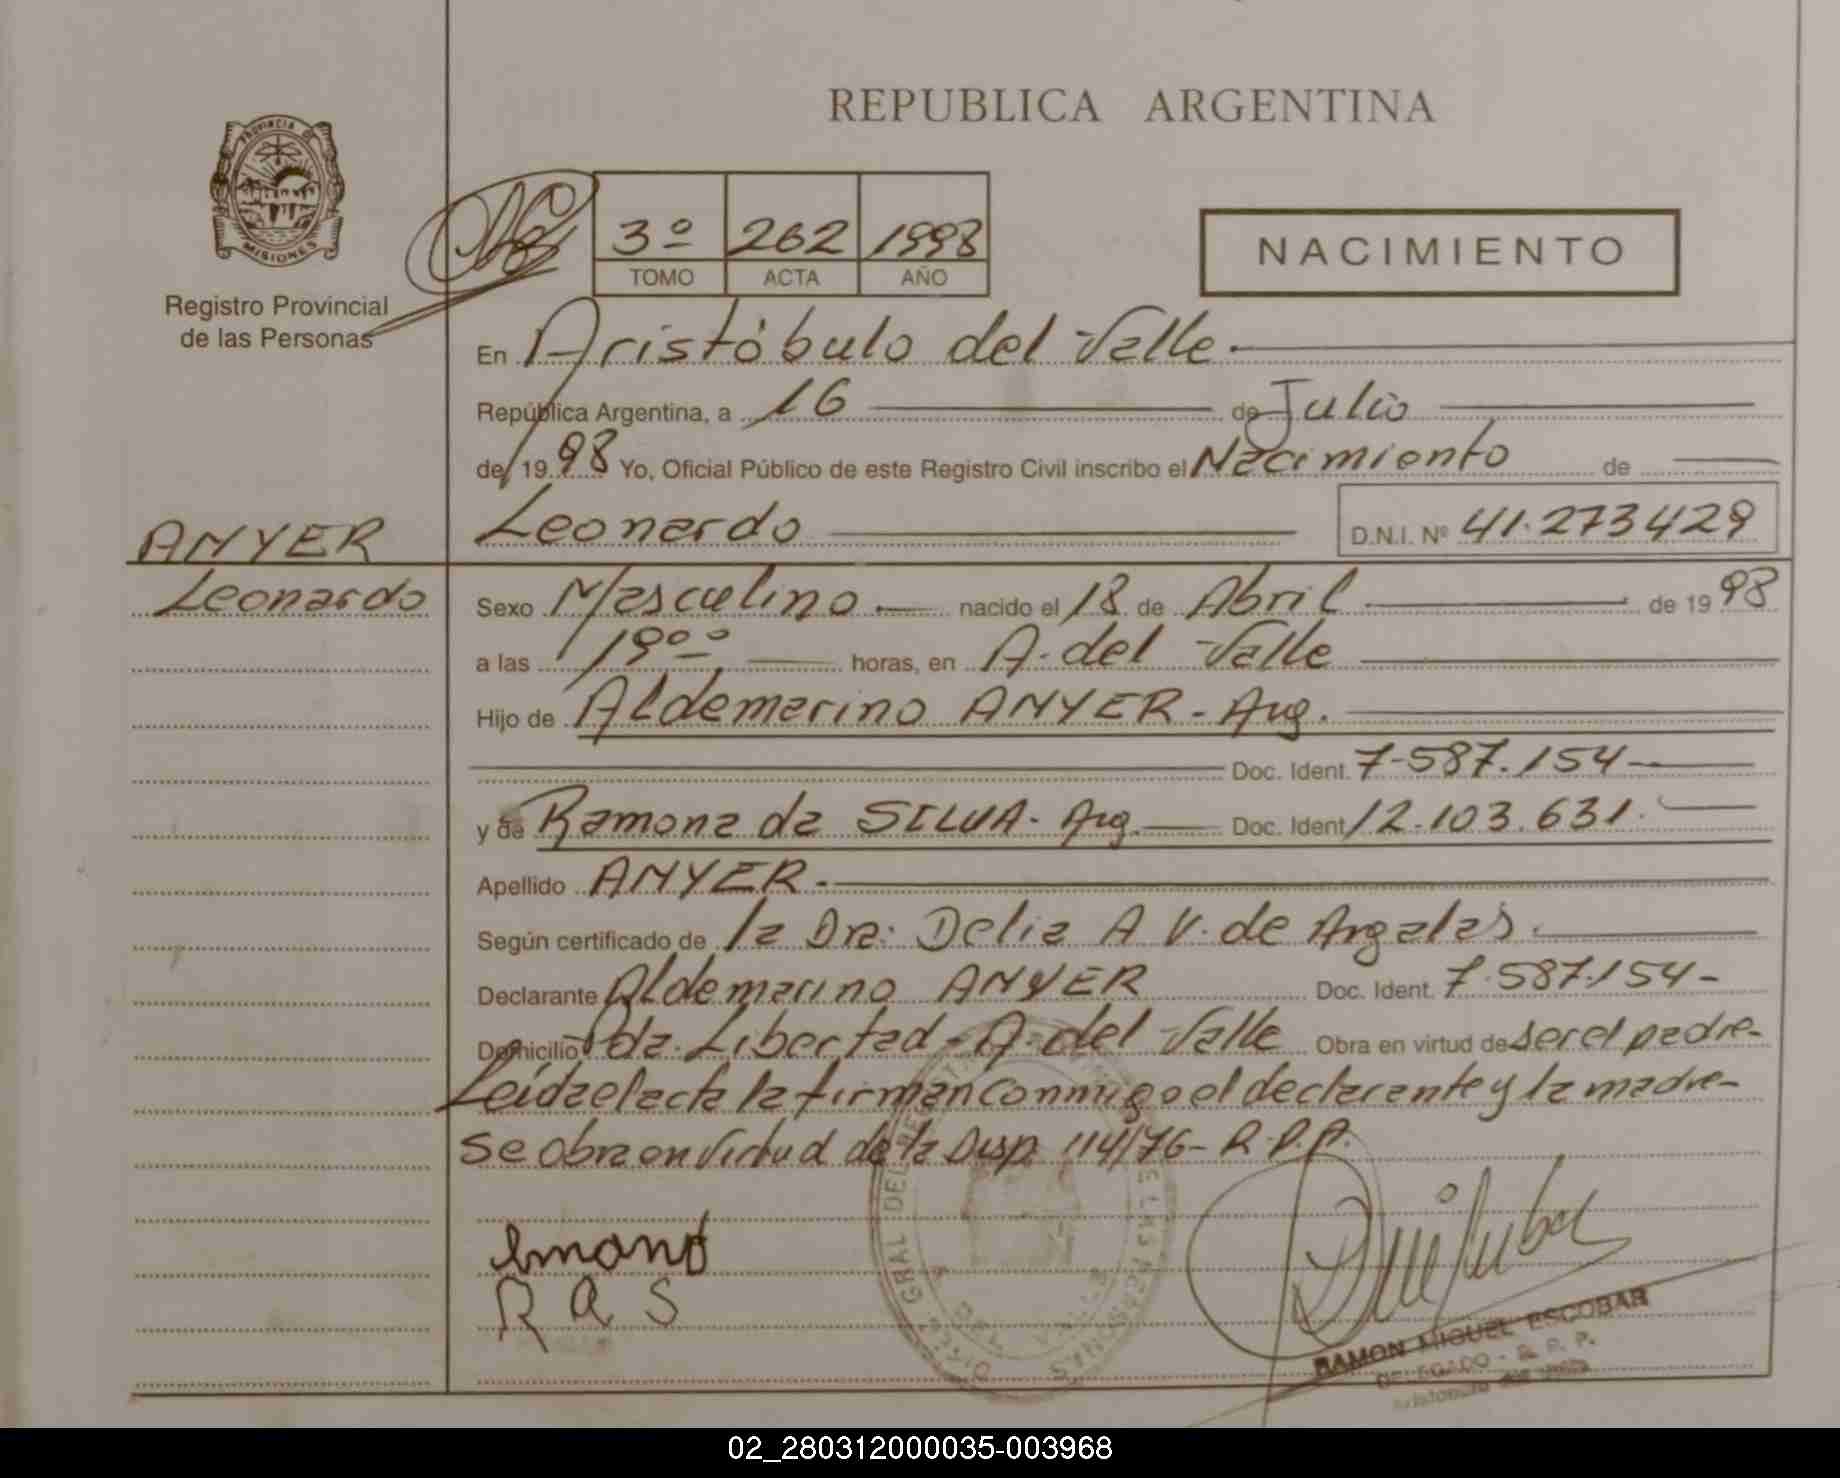 REPUBLICA ARGENTINA
PROVINCIA DE
MISIONES
Registro Provincial
de las Personas
3º 262 1998
TOMO ACTA AÑO
NACIMIENTO
En Aristóbulo del Valle.
República Argentina, a 16 de Julio
de 19 98 Yo, Oficial Público de este Registro Civil inscribo el Nacimiento de
ANYER
Leonardo
Leonardo D.N.I. Nº 41.273429
Sexo Masculino. nacido el 18 de Abril de 19 98
a las 19ºº horas, en A. del Valle
Hijo de Aldemarino ANYER - Arg.
Doc. Ident. 7-587.154-
y de Ramona da SILVA - Arg. Doc. Ident 12.103.631.
Apellido ANYER.
Según certificado de la Dra: Delia A V. de Argalas.
Declarante Aldemarino ANYER Doc. Ident. 7.587.154-
Domicilio Pda. Libertad - A. del Valle Obra en virtud de ser el padre-
Leída el acta la firman conmigo el declarante y la madre-
se obra en virtud de la Disp. 114/76- R.P.P.
R A S
RAMON MIGUEL ESCOBAR
DELEGADO - R. P. P.
Aristobulo del Valle
02_280312000035-003968